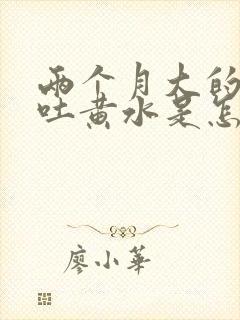 两个月大的
吐黄水是怎
廖小华